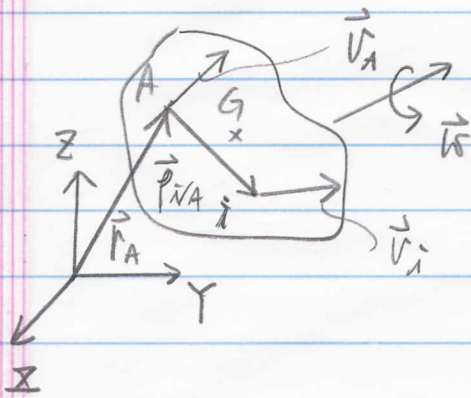 v⃗_A
A
G
x
ω⃗
Z
ρ⃗_i/A
i
r⃗_A
v⃗_i
Y
X